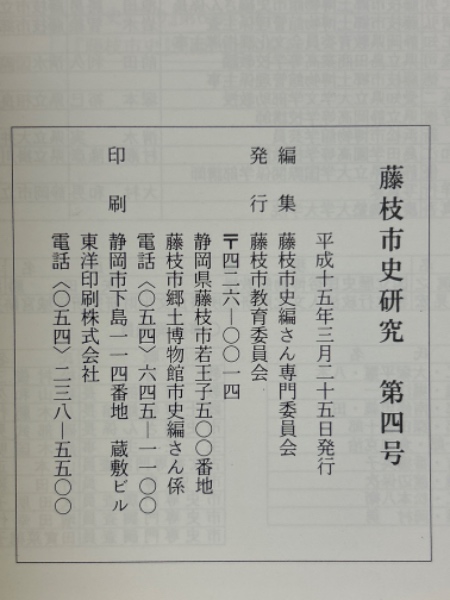 藤枝市史研究 第四号
平成十五年三月二十五日発行
編集 藤枝市史編さん専門委員会
発行 藤枝市教育委員会
〒四二六―〇〇一四
静岡県藤枝市若王子五〇〇番地
藤枝市郷土博物館市史編さん係
電話〈〇五四〉六四五―一一〇〇
印刷 静岡市下島一一四番地 蔵敷ビル
東洋印刷株式会社
電話〈〇五四〉二三八―五五〇〇